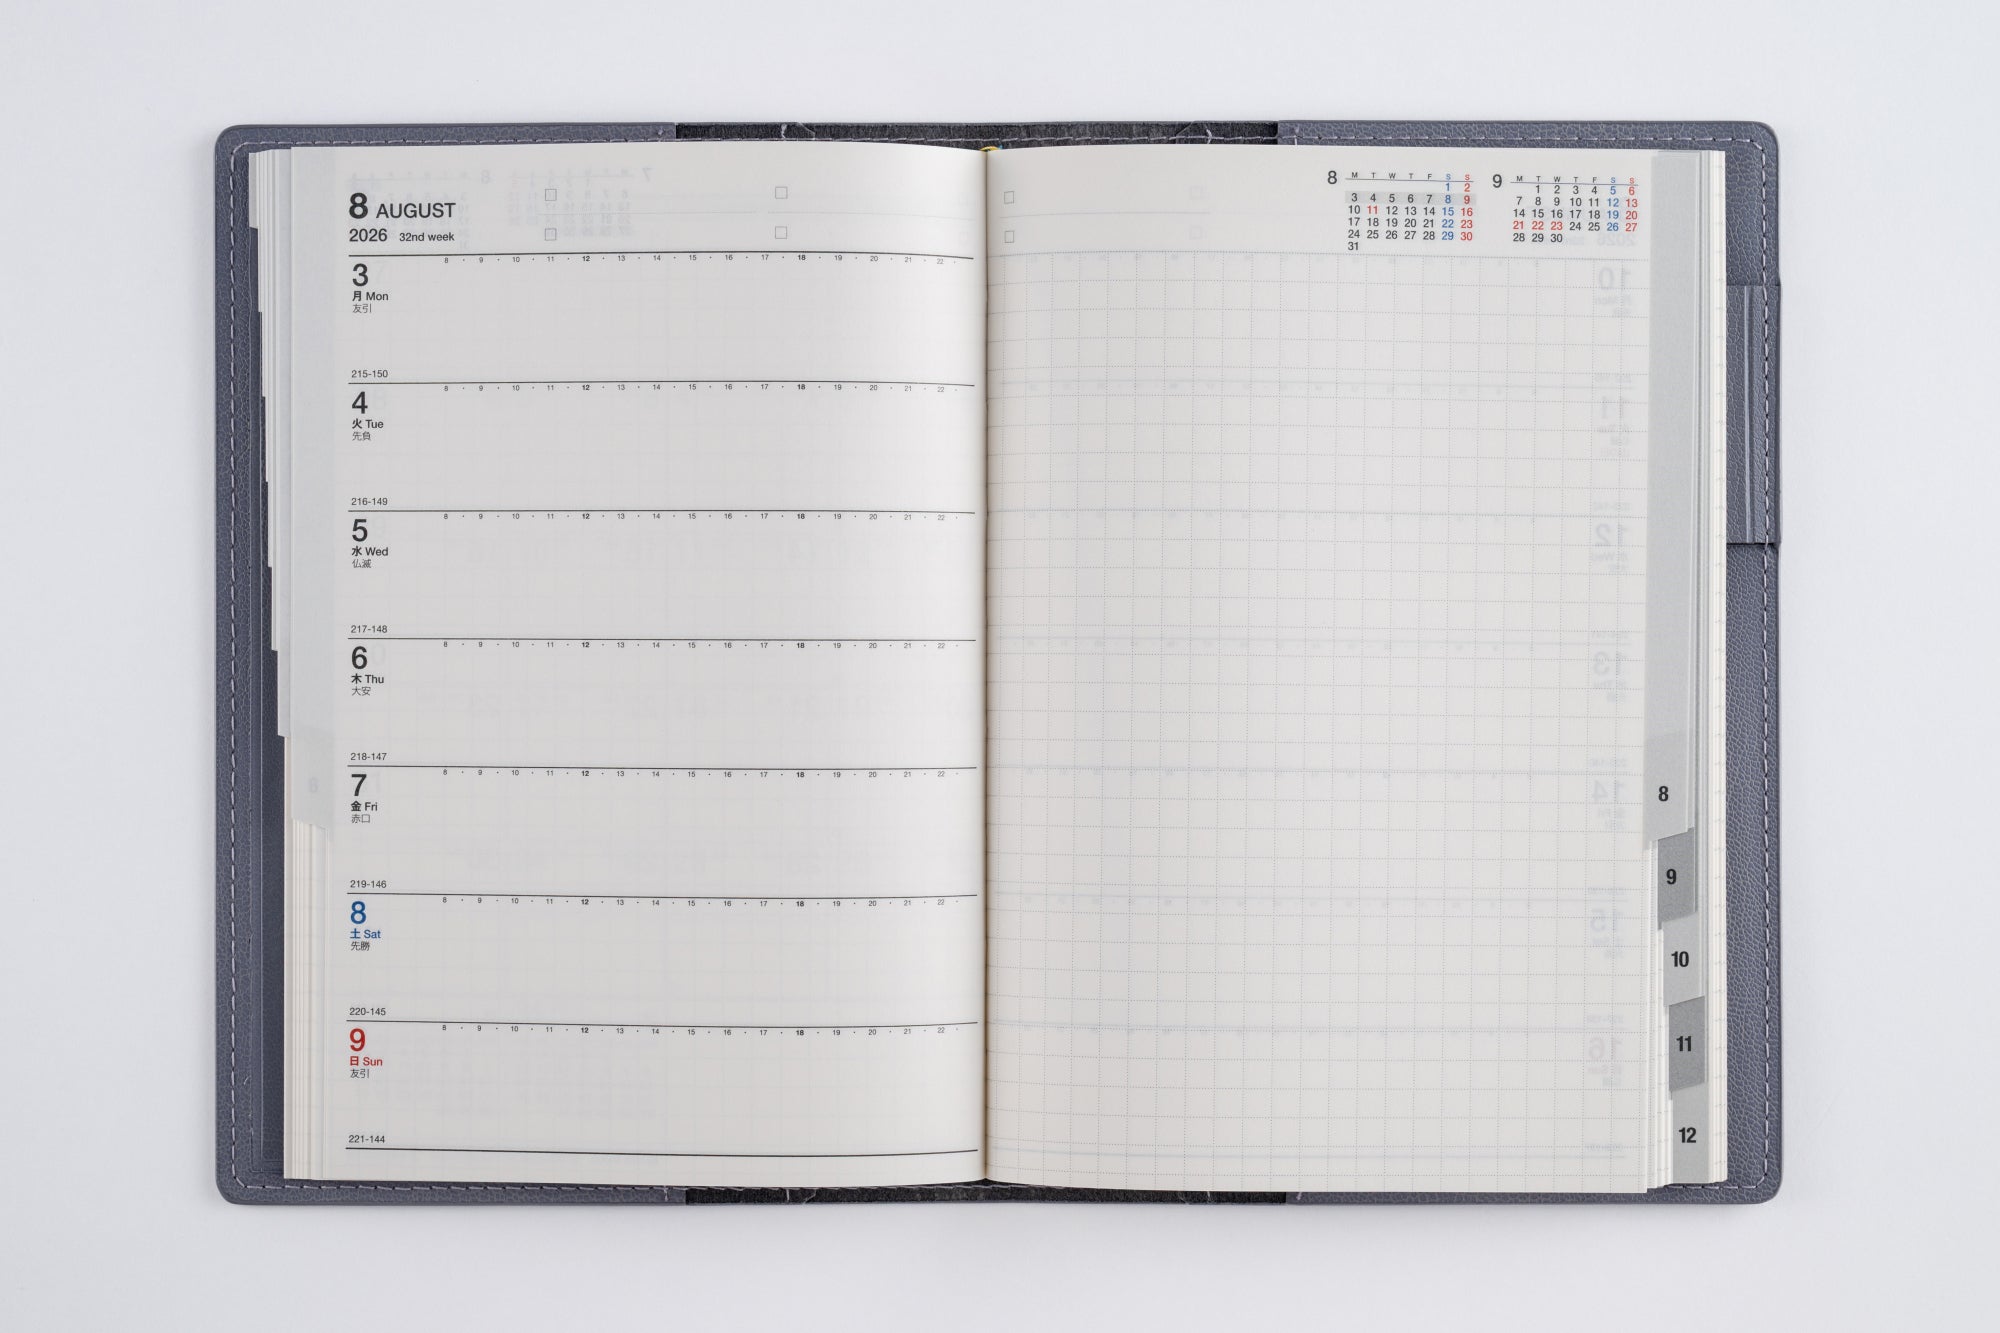 8 AUGUST
2026 32nd week
8 · 9 · 10 · 11 · 12 · 13 · 14 · 15 · 16 · 17 · 18 · 19 · 20 · 21 · 22 ·
3
月 Mon
友引
215-150
8 · 9 · 10 · 11 · 12 · 13 · 14 · 15 · 16 · 17 · 18 · 19 · 20 · 21 · 22 ·
4
火 Tue
先負
216-149
8 · 9 · 10 · 11 · 12 · 13 · 14 · 15 · 16 · 17 · 18 · 19 · 20 · 21 · 22 ·
5
水 Wed
仏滅
217-148
8 · 9 · 10 · 11 · 12 · 13 · 14 · 15 · 16 · 17 · 18 · 19 · 20 · 21 · 22 ·
6
木 Thu
大安
218-147
8 · 9 · 10 · 11 · 12 · 13 · 14 · 15 · 16 · 17 · 18 · 19 · 20 · 21 · 22 ·
7
金 Fri
赤口
219-146
8 · 9 · 10 · 11 · 12 · 13 · 14 · 15 · 16 · 17 · 18 · 19 · 20 · 21 · 22 ·
8
土 Sat
先勝
220-145
8 · 9 · 10 · 11 · 12 · 13 · 14 · 15 · 16 · 17 · 18 · 19 · 20 · 21 · 22 ·
9
日 Sun
友引
221-144
8 M T W T F S S
1 2
3 4 5 6 7 8 9
10 11 12 13 14 15 16
17 18 19 20 21 22 23
24 25 26 27 28 29 30
31
9 M T W T F S S
1 2 3 4 5 6
7 8 9 10 11 12 13
14 15 16 17 18 19 20
21 22 23 24 25 26 27
28 29 30
8
9
10
11
12